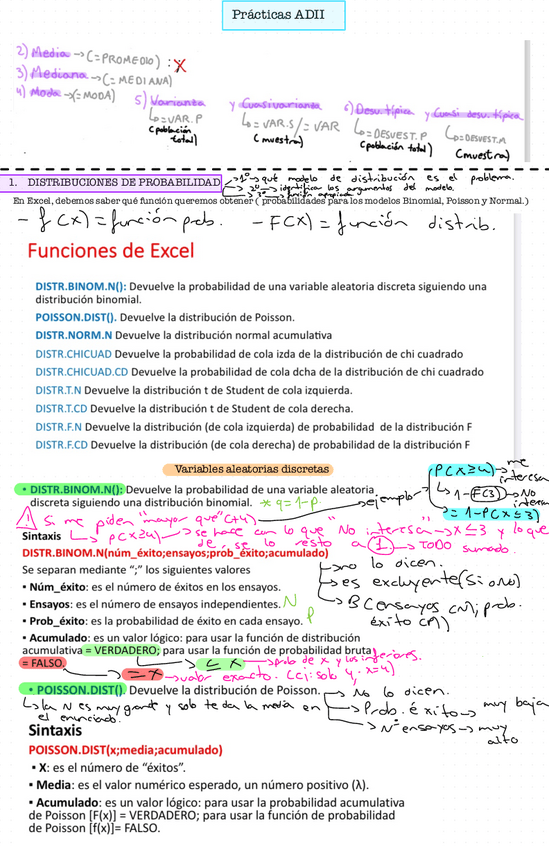 Prácticas ADII
2) Media → (=PROMEDIO) : X
3) Mediana → (=MEDIANA)
4) Moda → (=MODA)
5) Varianza y Cuasivarianza
=VAR.P
(población total)
=VAR.S/=VAR
(muestra)
6) Desv. típica y Cuasi desv. típica
=DESVEST.P
(población total)
=DESVEST.M
(muestra)
1. DISTRIBUCIONES DE PROBABILIDAD
→ 1º → qué modelo de distribución es el problema.
→ 2º → identificar los argumentos del modelo.
→ 3º → función apropiada
En Excel, debemos saber qué función queremos obtener ( probabilidades para los modelos Binomial, Poisson y Normal.)
- f(x) = función prob. - F(x) = función distrib.
Funciones de Excel
DISTR.BINOM.N(): Devuelve la probabilidad de una variable aleatoria discreta siguiendo una
distribución binomial.
POISSON.DIST(). Devuelve la distribución de Poisson.
DISTR.NORM.N Devuelve la distribución normal acumulativa
DISTR.CHICUAD Devuelve la probabilidad de cola izda de la distribución de chi cuadrado
DISTR.CHICUAD.CD Devuelve la probabilidad de cola dcha de la distribución de chi cuadrado
DISTR.T.N Devuelve la distribución t de Student de cola izquierda.
DISTR.T.CD Devuelve la distribución t de Student de cola derecha.
DISTR.F.N Devuelve la distribución (de cola izquierda) de probabilidad de la distribución F
DISTR.F.CD Devuelve la distribución (de cola derecha) de probabilidad de la distribución F
Variables aleatorias discretas
P(x≥4) → me interesa
1-F(3) → No interesa
= 1-P(x≤3)
• DISTR.BINOM.N(): Devuelve la probabilidad de una variable aleatoria
discreta siguiendo una distribución binomial. * q = 1-p → ejemplo
Si me piden "mayor que" (+4)
P(x≥4) → se hace con lo que "No interesa" → x≤3 y lo que
se le resta a 1 → TODO sumado.
Sintaxis
DISTR.BINOM.N(núm_éxito;ensayos;prób_éxito;acumulado)
→ no lo dicen.
→ es excluyente (Si o No)
→ B (ensayos (N); prob. éxito (P))
Se separan mediante ";" los siguientes valores
• Núm_éxito: es el número de éxitos en los ensayos.
• Ensayos: es el número de ensayos independientes. N
• Prob_éxito: es la probabilidad de éxito en cada ensayo. P
▪ Acumulado: es un valor lógico: para usar la función de distribución
acumulativa = VERDADERO; para usar la función de probabilidad bruta
= FALSO.
≤ x → prob de x y los inferiores.
= x → valor exacto. (ej: solo 4; x=4)
• POISSON.DIST(). Devuelve la distribución de Poisson.
→ No lo dicen.
→ Prob. éxito → muy baja
→ Nº ensayos → muy alto
la N es muy grande y solo te dan la media en el enunciado.
Sintaxis
POISSON.DIST(x;media;acumulado)
• X: es el número de "éxitos".
▪ Media: es el valor numérico esperado, un número positivo (λ).
▪ Acumulado: es un valor lógico: para usar la probabilidad acumulativa
de Poisson [F(x)] = VERDADERO; para usar la función de probabilidad
de Poisson [f(x)]= FALSO.